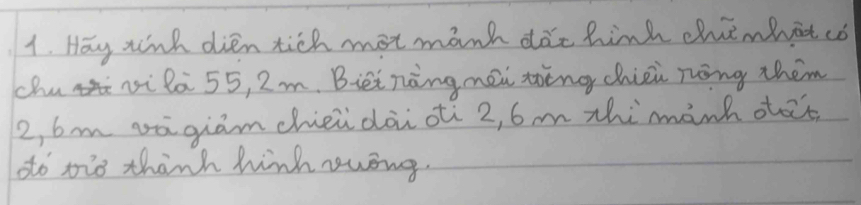 1. Hãy tính diện tích một mảnh đất hình chữ nhật có
chu vi là 55,2m. Biết rằng nếu tăng chiều rộng thêm
2,6m và giảm chiều dài đi 2,6m thì mảnh đất
đó trở thành hình vuông.